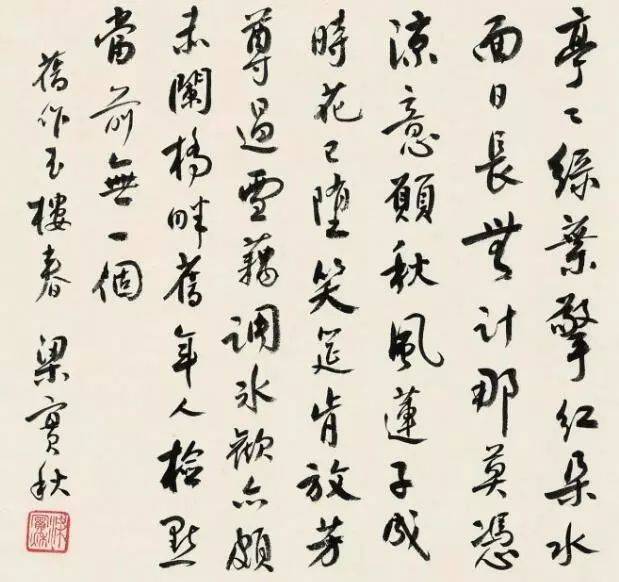 亭〻綠葉擎紅朵水
面日長無計那莫憑
涼意願秋風蓮子成
時花已墮笑筵肯放芳
尊過雪藕調冰歡亦頗
赤闌橋畔舊年人檢點
當前無一個
舊作玉樓春 梁實秋
梁實秋